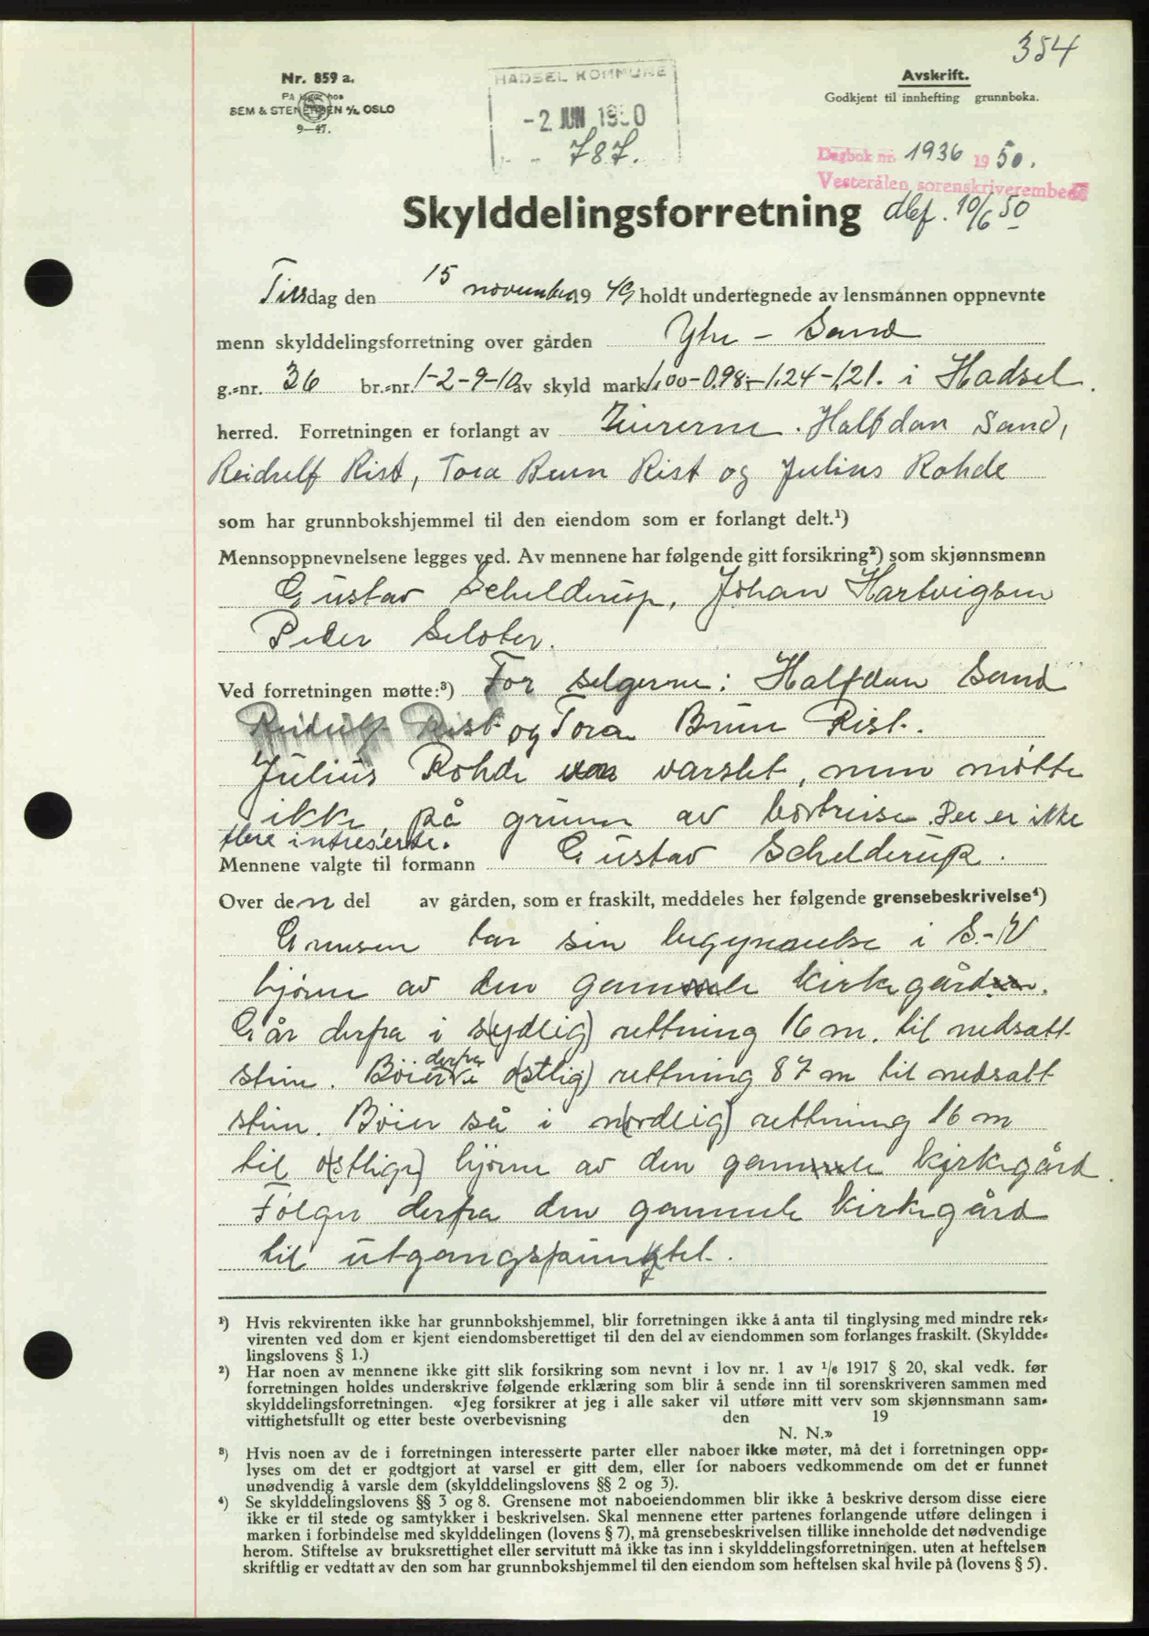 354
Nr. 859 a.
På lager hos
SEM & STENERSEN A/S. OSLO
9—47.
HADSEL KOMMUNE
-2 JUN 1950
787.
Avskrift.
Godkjent til innhefting grunnboka.
Dagbok nr. 1936 1950.
Vesterålen sorenskriverembede
Skylddelingsforretning dbf. 10/6 50
Tirsdag den 15 november 19 49 holdt undertegnede av lensmannen oppnevnte
menn skylddelingsforretning over gården Ytre - Sand
g.-nr. 36 br.-nr. 1-2-9-10 av skyld mark 1,00-0,98-1,24-1,21. i Hadsel.
herred. Forretningen er forlangt av Eierene. Halfdan Sand,
Reidulf Rist, Tora Brun Rist og Julius Rohde
som har grunnbokshjemmel til den eiendom som er forlangt delt.¹)
Mennsoppnevnelsene legges ved. Av mennene har følgende gitt forsikring²) som skjønnsmenn
Gustav Schelderup, Johan Hartvigsen
Peder Seloter.
Ved forretningen møtte:³) For selgerne: Halfdan Sand
Reidulf Rist og Tora Brun Rist.
Julius Rohde var varslet, men møtte
ikke på grunn av bortreise. Der er ikke
flere intreserte.
Mennene valgte til formann Gustav Schelderup.
Over den del av gården, som er fraskilt, meddeles her følgende grensebeskrivelse⁴)
Grensen tar sin begynnelse i S.-V
hjørne av den gammele kirkegård.
Går derfra i s(ydlig) rettning 16 m. til nedsatt
sten. Bøier derfra ø(stlig) rettning 87 m til nedsatt
sten. Bøier så i n(ordlig) rettning 16 m
til ø(stlige) hjørne av den gammele kirkegård.
Følger derfra den gammele kirkegård
til utgangspunktet.
¹) Hvis rekvirenten ikke har grunnbokshjemmel, blir forretningen ikke å anta til tinglysing med mindre rek-
virenten ved dom er kjent eiendomsberettiget til den del av eiendommen som forlanges fraskilt. (Skyldde-
lingslovens § 1.)
²) Har noen av mennene ikke gitt slik forsikring som nevnt i lov nr. 1 av 1/6 1917 § 20, skal vedk. før
forretningen holdes underskrive følgende erklæring som blir å sende inn til sorenskriveren sammen med
skylddelingsforretningen. «Jeg forsikrer at jeg i alle saker vil utføre mitt verv som skjønnsmann sam-
vittighetsfullt og etter beste overbevisning den 19
N. N.»
³) Hvis noen av de i forretningen interesserte parter eller naboer ikke møter, må det i forretningen opp-
lyses om det er godtgjort at varsel er gitt dem, eller for naboers vedkommende om det er funnet
unødvendig å varsle dem (skylddelingslovens §§ 2 og 3).
⁴) Se skylddelingslovens §§ 3 og 8. Grensene mot naboeiendommen blir ikke å beskrive dersom disse eiere
ikke er til stede og samtykker i beskrivelsen. Skal mennene etter partenes forlangende utføre delingen i
marken i forbindelse med skylddelingen (lovens § 7), må grensebeskrivelsen tillike inneholde det nødvendige
herom. Stiftelse av bruksrettighet eller servitutt må ikke tas inn i skylddelingsforretningen, uten at heftelsen
skriftlig er vedtatt av den som har grunnbokshjemmel til den eiendom som heftelsen skal hvile på (lovens § 5).